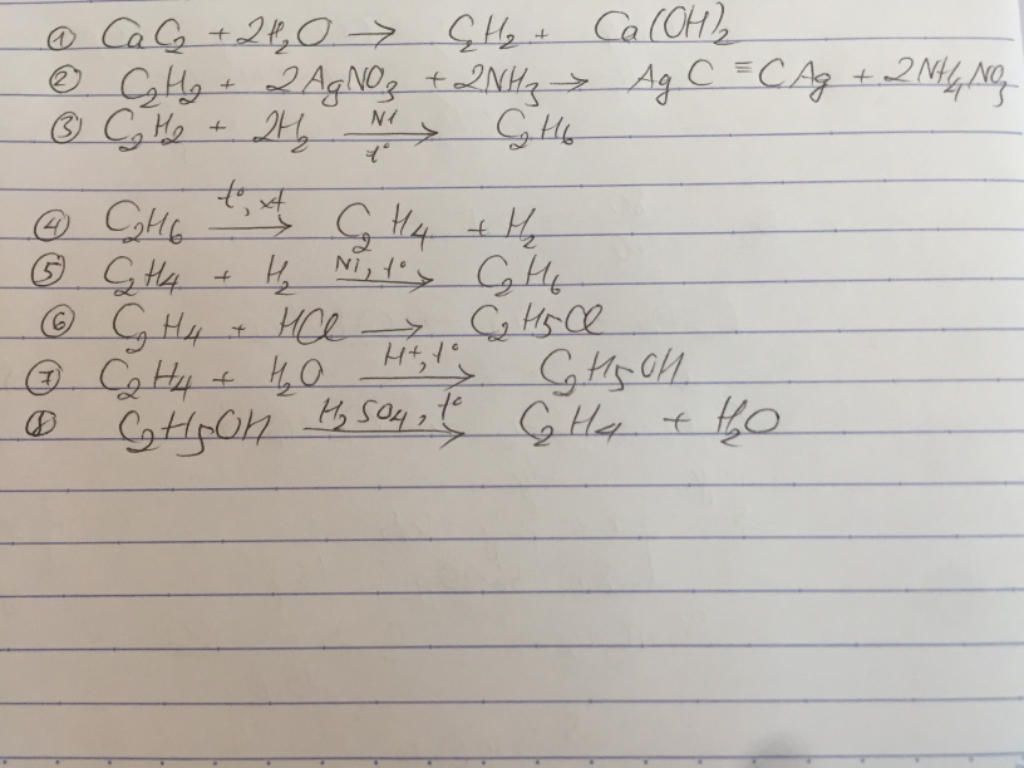 ① CaC₂ + 2H₂O → C₂H₂ + Ca(OH)₂
② C₂H₂ + 2AgNO₃ + 2NH₃ → AgC≡CAg + 2NH₄NO₃
③ C₂H₂ + 2H₂ —Ni, t°→ C₂H₆
④ C₂H₆ —t°, xt→ C₂H₄ + H₂
⑤ C₂H₄ + H₂ —Ni, t°→ C₂H₆
⑥ C₂H₄ + HCl → C₂H₅Cl
⑦ C₂H₄ + H₂O —H+, t°→ C₂H₅OH
⑧ C₂H₅OH —H₂SO₄, t°→ C₂H₄ + H₂O